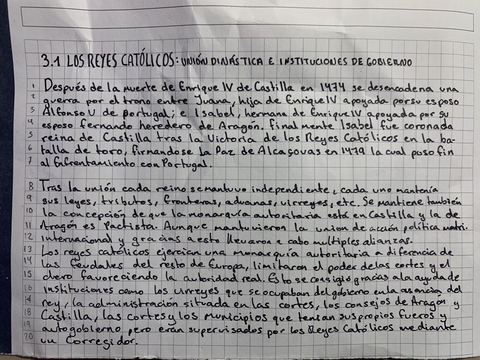 3.1 LOS REYES CATÓLICOS: UNIÓN DINÁSTICA E INSTITUCIONES DE GOBIERNO
1 Después de la muerte de Enrique IV de Castilla en 1474 se desencadena una
2 guerra por el trono entre Juana, hija de Enrique IV apoyada por su esposo
3 Alfonso V de portugal; e Isabel, hermana de Enrique IV apoyada por su
4 esposo fernando heredero de Aragón. finalmente Isabel fue coronada
5 reina de Castilla tras la Victoria de los Reyes Católicos en la ba-
6 talla de toro, firmandose la Paz de Alcaçovas en 1479 la cual puso fin
7 al Enfrentamiento con Portugal.
8 Tras la unión cada reino se mantuvo independiente, cada uno mantenía
9 sus leyes, tributos, fronteras, aduanas, virreyes, etc. Se mantiene también
10 la concepción de que la monarquía autoritaria está en Castilla y la de
11 Aragón es Pactista. Aunque mantuvieron la union de acción política matri.
12 Internacional y gracias a esto llevaron a cabo multiples alianzas.
13 Los reyes católicos ejercian una monarquía autoritaria a diferencia de
14 las feudales del resto de Europa, limitaron el poder de las cortes y el
15 clero favoreciendo la autoridad real. Esto se consigió gracias a la ayuda de
16 Instituciones como los virreyes que se ocupaban del gobierno en la ausencia del
17 rey, la administración situada en las cortes, los consejos de Aragón y
18 Castilla, las cortes y los municipios que tenían sus propios fueros y
19 autogobierno pero eran supervisados por los Reyes Católicos mediante
20 un Corregidor.